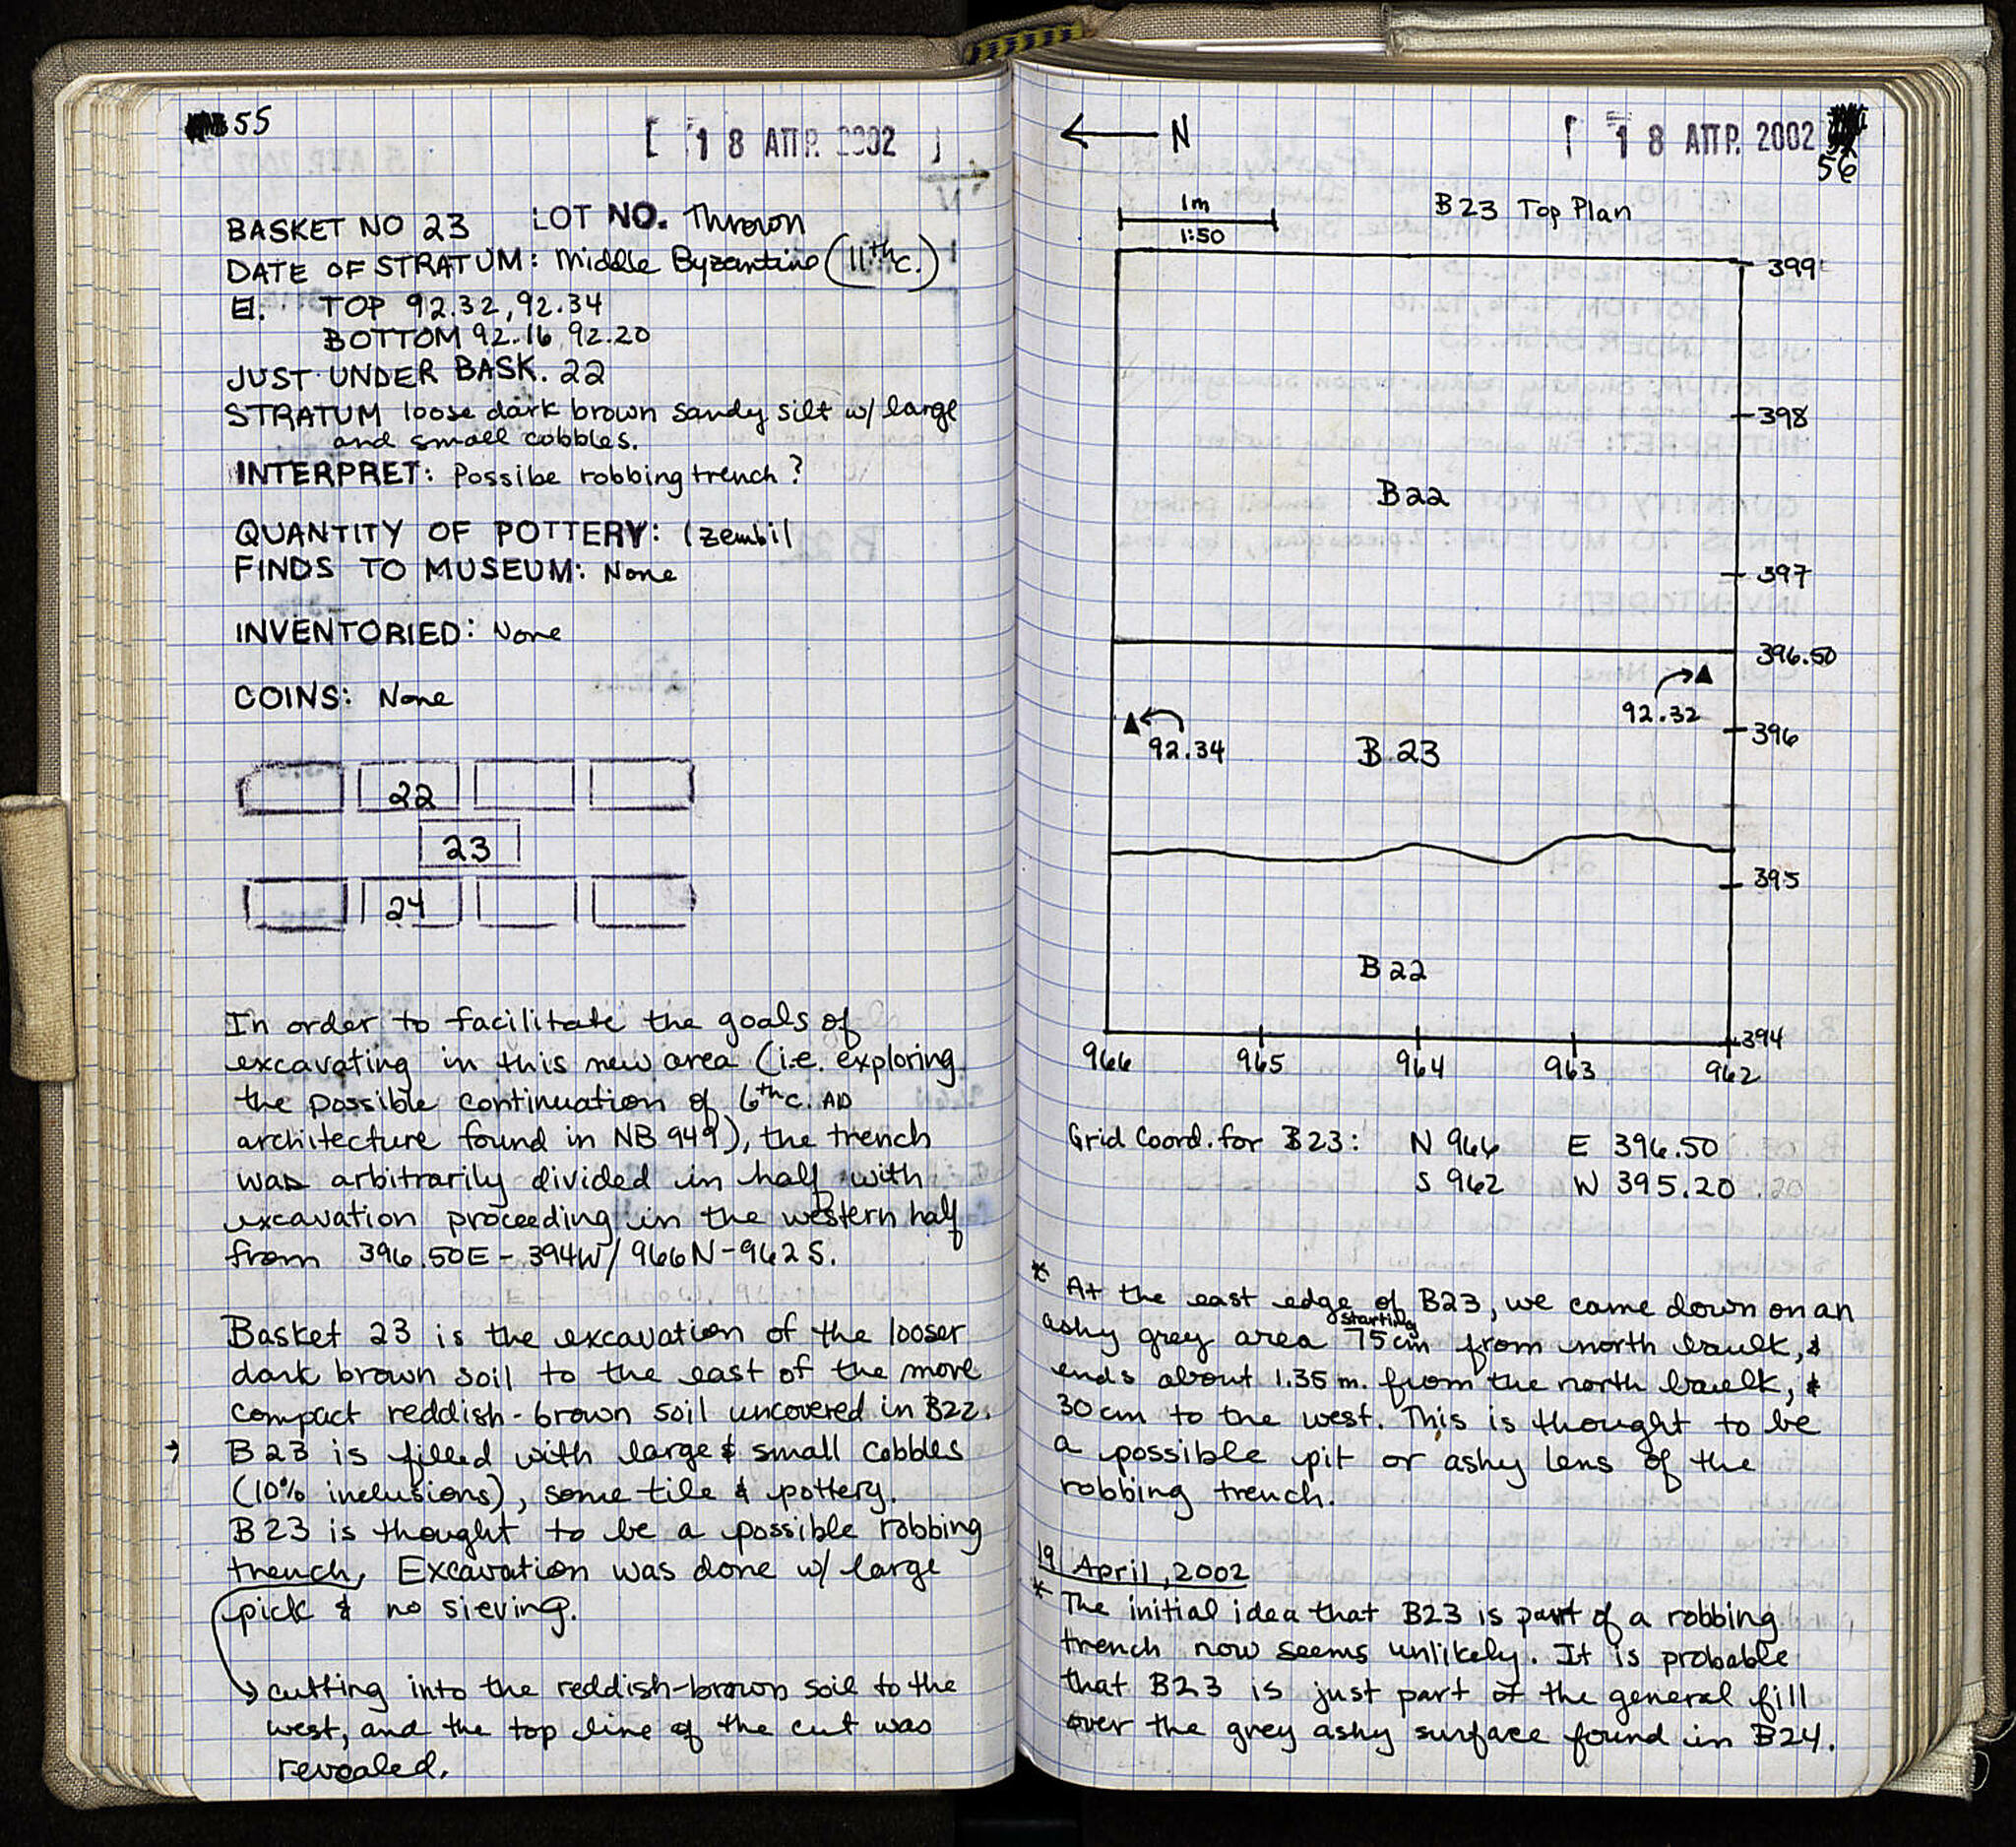 55
18 ΑΠΡ. 2002
BASKET NO 23 LOT NO. Thrown
DATE OF STRATUM: Middle Byzantine (11th c.)
El. TOP 92.32, 92.34
BOTTOM 92.16, 92.20
JUST UNDER BASK. 22
STRATUM loose dark brown sandy silt w/ large
and small cobbles.
INTERPRET: Possibe robbing trench?
QUANTITY OF POTTERY: 1 zembil
FINDS TO MUSEUM: None
INVENTORIED: None
COINS: None
22
23
24
In order to facilitate the goals of
excavating in this new area (i.e. exploring
the possible continuation of 6th c. AD
architecture found in NB 949), the trench
was arbitrarily divided in half with
excavation proceeding in the western half
from 396.50E - 394W/ 966N-962S.
Basket 23 is the excavation of the looser
dark brown soil to the east of the more
compact reddish-brown soil uncovered in B22.
→ B23 is filled with large & small cobbles
(10% inclusions), some tile & pottery.
B23 is thought to be a possible robbing
trench, Excavation was done w/ large
pick & no sieving.
→ cutting into the reddish-brown soil to the
west, and the top line of the cut was
revealed.
← N
18 ΑΠΡ. 2002
56
1m
1:50
B23 Top Plan
399
398
B22
397
396.50
92.32
396
92.34
B.23
395
B22
394
966 965 964 963 962
Grid Coord. for B23: N 966 E 396.50
S 962 W 395.20
* At the east edge of B23, we came down on an
ashy grey area starting 75cm from north baulk, &
ends about 1.35 m. from the north baulk, &
30cm to the west. This is thought to be
a possible pit or ashy lens of the
robbing trench.
19 April, 2002
* The initial idea that B23 is part of a robbing
trench now seems unlikely. It is probable
that B23 is just part of the general fill
over the grey ashy surface found in B24.